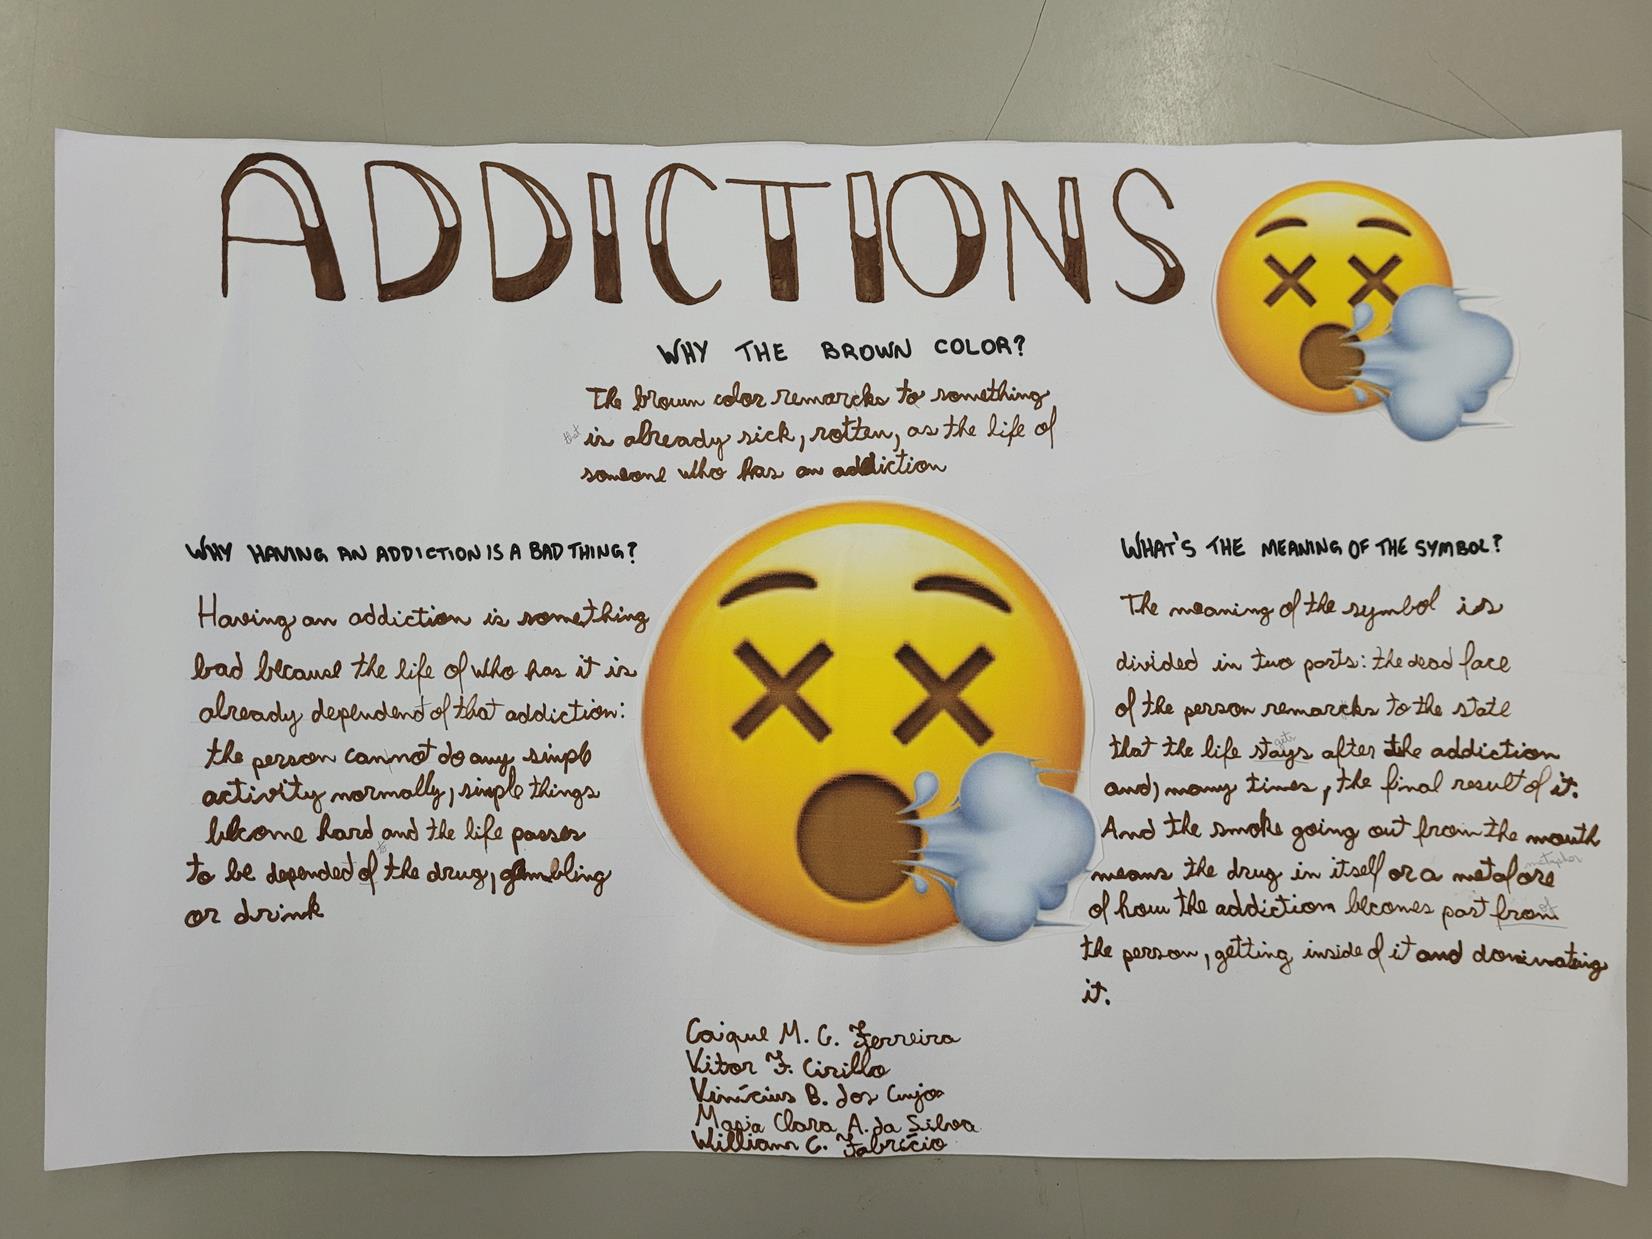 ADDICTIONS
WHY THE BROWN COLOR?
The brown color remarcks to something
that is already sick, rotten, as the life of
someone who has an addiction
WHY HAVING AN ADDICTION IS A BAD THING?
Having an addiction is something
bad because the life of who has it is
already dependend of that addiction:
the person cannot do any simple
activity normally, simple things
become hard and the life passes
to
to be depended of the drug, gambling
or drink
WHAT'S THE MEANING OF THE SYMBOL?
The meaning of the symbol is
divided in two parts: the dead face
of the person remarcks to the state
gets
that the life stays after the addiction
and, many times, the final result of it.
And the smoke going out from the mouth
metaphor
means the drug in itself or a metafore
of
of how the addiction becomes part from
the person, getting inside of it and dominating
it.
Caique M. C. Ferreira
Vitor F. Cirillo
Vinícius B. dos Anjos
Maria Clara A. da Silva
William C. Fabrício